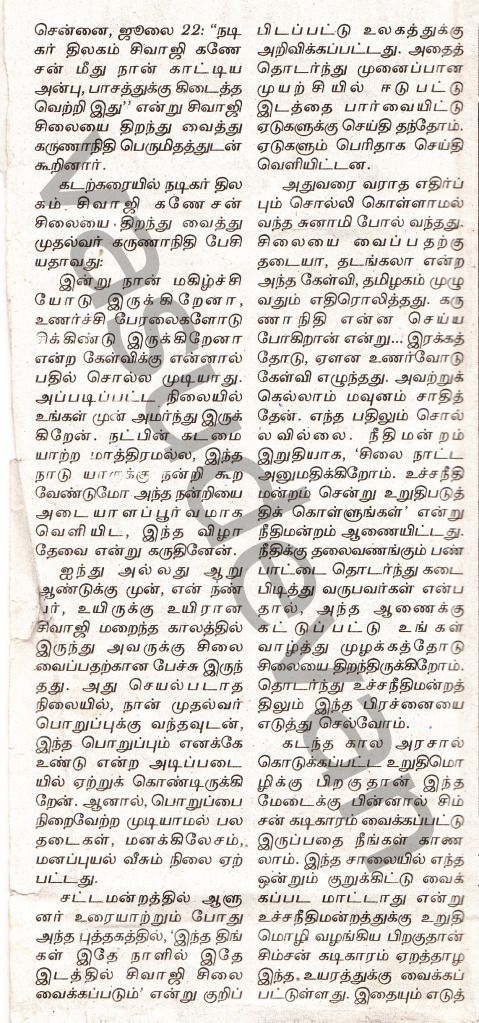 சென்னை, ஜூலை 22: "நடி
கர் திலகம் சிவாஜி கணே
சன் மீது நான் காட்டிய
அன்பு, பாசத்துக்கு கிடைத்த
வெற்றி இது" என்று சிவாஜி
சிலையை திறந்து வைத்து
கருணாநிதி பெருமிதத்துடன்
கூறினார்.
கடற்கரையில் நடிகர் தில
கம் சிவாஜி கணேசன்
சிலையை திறந்து வைத்து
முதல்வர் கருணாநிதி பேசி
யதாவது:
இன்று நான் மகிழ்ச்சி
யோடு இருக்கிறேனா,
உணர்ச்சி பேரலைகளோடு
இருக்கிறேனா
என்ற கேள்விக்கு என்னால்
பதில் சொல்ல முடியாது.
அப்படிப்பட்ட நிலையில்
உங்கள் முன் அமர்ந்து இருக்
கிறேன். நட்பின் கடமை
யாற்ற மாத்திரமல்ல, இந்த
நாடு யாருக்கு நன்றி கூற
வேண்டுமோ அந்த நன்றியை
அடையாளப்பூர்வமாக
வெளியிட, இந்த விழா
தேவை என்று கருதினேன்.
ஐந்து அல்லது ஆறு
ஆண்டுக்கு முன், என் நண்
பர், உயிருக்கு உயிரான
சிவாஜி மறைந்த காலத்தில்
இருந்து அவருக்கு சிலை
வைப்பதற்கான பேச்சு இருந்
தது. அது செயல்படாத
நிலையில், நான் முதல்வர்
பொறுப்புக்கு வந்தவுடன்,
இந்த பொறுப்பும் எனக்கே
உண்டு என்ற அடிப்படை
யில் ஏற்றுக் கொண்டிருக்கி
றேன். ஆனால், பொறுப்பை
நிறைவேற்ற முடியாமல் பல
தடைகள், மனக்கிலேசம்,
மனப்புயல் வீசும் நிலை ஏற்
பட்டது.
சட்டமன்றத்தில் ஆளு
னர் உரையாற்றும் போது
அந்த புத்தகத்தில், 'இந்த திங்
கள் இதே நாளில் இதே
இடத்தில் சிவாஜி சிலை
வைக்கப்படும்' என்று குறிப்
பிடப்பட்டு உலகத்துக்கு
அறிவிக்கப்பட்டது. அதைத்
தொடர்ந்து முனைப்பான
முயற்சியில் ஈடுபட்டு
இடத்தை பார்வையிட்டு
ஏடுகளுக்கு செய்தி தந்தோம்.
ஏடுகளும் பெரிதாக செய்தி
வெளியிட்டன.
அதுவரை வராத எதிர்ப்
பும் சொல்லி கொள்ளாமல்
வந்த சுனாமி போல் வந்தது.
சிலையை வைப்பதற்கு
தடையா, தடங்கலா என்ற
அந்த கேள்வி, தமிழகம் முழு
வதும் எதிரொலித்தது. கரு
ணாநிதி என்ன செய்ய
போகிறான் என்று... இரக்கத்
தோடு, ஏளன உணர்வோடு
கேள்வி எழுந்தது. அவற்றுக்
கெல்லாம் மவுனம் சாதித்
தேன். எந்த பதிலும் சொல்
லவில்லை. நீதிமன்றம்
இறுதியாக, 'சிலை நாட்ட
அனுமதிக்கிறோம். உச்சநீதி
மன்றம் சென்று உறுதிபடுத்
திக் கொள்ளுங்கள்' என்று
நீதிமன்றம் ஆணையிட்டது.
நீதிக்கு தலைவணங்கும் பண்
பாட்டை தொடர்ந்து கடை
பிடித்து வருபவர்கள் என்ப
தால், அந்த ஆணைக்கு
கட்டுப்பட்டு உங்கள்
வாழ்த்து முழக்கத்தோடு
சிலையை திறந்திருக்கிறோம்.
தொடர்ந்து உச்சநீதிமன்றத்
திலும் இந்த பிரச்னையை
எடுத்து செல்வோம்.
கடந்த கால அரசால்
கொடுக்கப்பட்ட உறுதிமொ
ழிக்கு பிறகுதான் இந்த
மேடைக்கு பின்னால் சிம்
சன் கடிகாரம் வைக்கப்பட்டு
இருப்பதை நீங்கள் காண
லாம். இந்த சாலையில் எந்த
ஒன்றும் குறுக்கிட்டு வைக்
கப்பட மாட்டாது என்று
உச்சநீதிமன்றத்துக்கு உறுதி
மொழி வழங்கிய பிறகுதான்
சிம்சன் கடிகாரம் ஏறத்தாழ
இந்த உயரத்துக்கு வைக்கப்
பட்டுள்ளது. இதையும் எடுத்
vasudevan